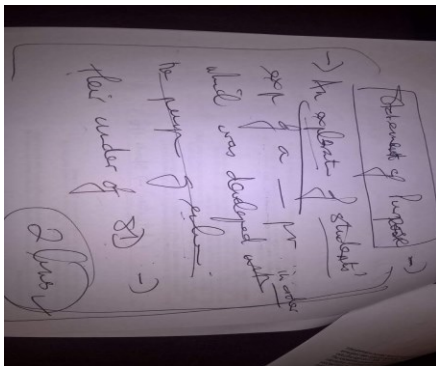 Statement of Purpose →
→ An explorat of students'
exp of a — pr in order
which was developed with
the purp of enh
their under of SD →
2 lines